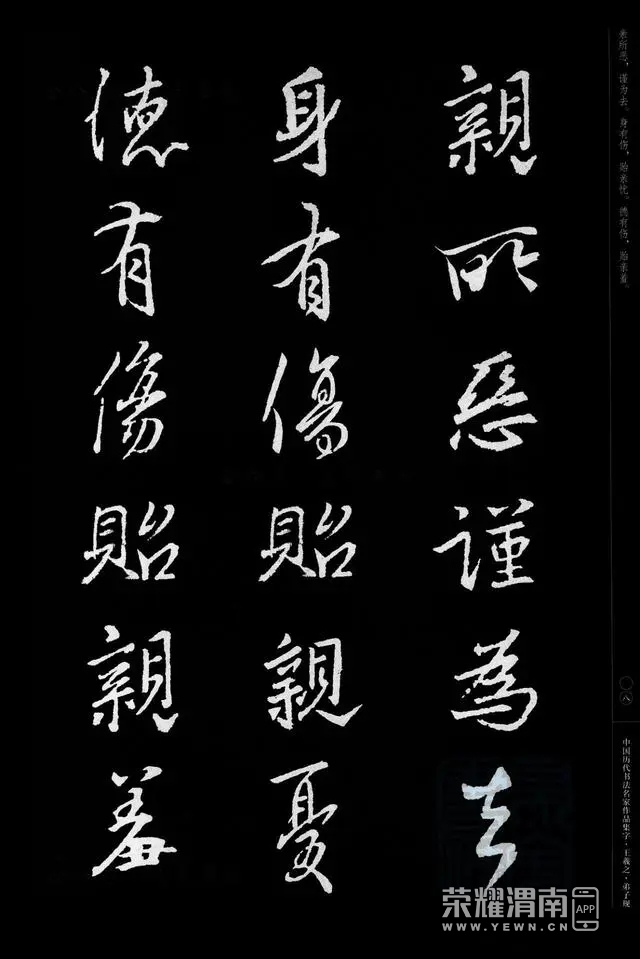 亲所恶，谨为去。身有伤，贻亲忧。德有伤，贻亲羞。
親所惡謹為去
身有傷貽親憂
德有傷貽親羞
〇八
中国历代书法名家作品集字·王羲之·弟子规
荣耀渭南APP
WWW.YEWN.CN